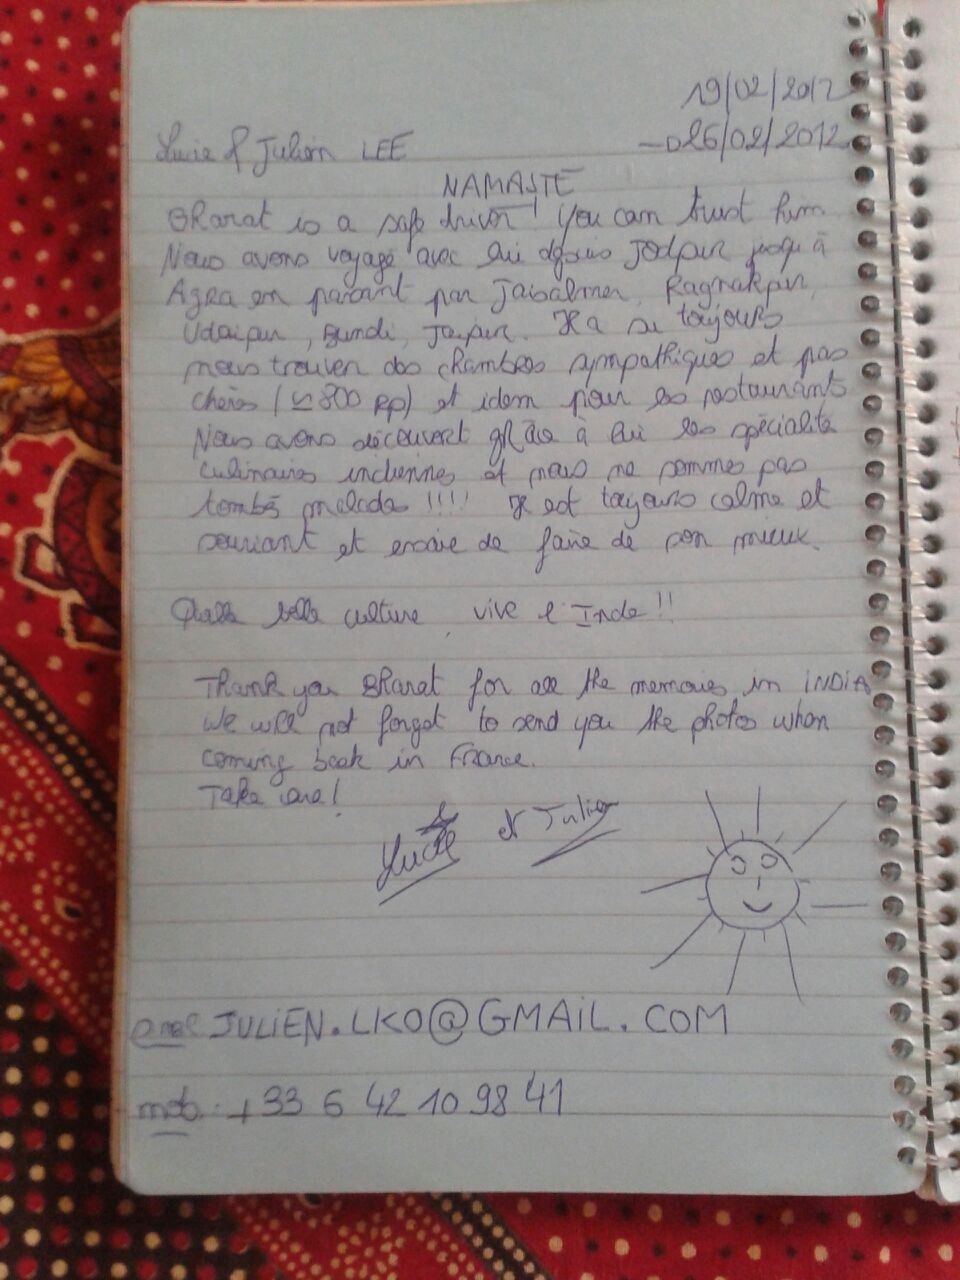 19/02/2012
→ 26/02/2012
Lucie & Julien LEE
NAMASTE
Bharat is a safe driver! You can trust him
Nous avons voyagé avec lui depuis Jodpur jusqu'à
Agra en passant par Jaisalmer, Ragnakpur,
Udaipur, Bundi, Jaipur. Il a su toujours
nous trouver des chambres sympathiques et pas
chères (≃ 800 rp) et idem pour les restaurants
Nous avons découvert grâce à lui les spécialités
culinaires indiennes et nous ne sommes pas
tombés malades !!!! Il est toujours calme et
souriant et essaie de faire de son mieux.
Quelle belle culture, vive l'Inde !!
Thank you Bharat for all the memories in INDIA
We will not forget to send you the photos when
coming back in France.
Take care!
Lucie et Julien
JULIEN.LKO@GMAIL.COM
mob: +33 6 42 10 98 41